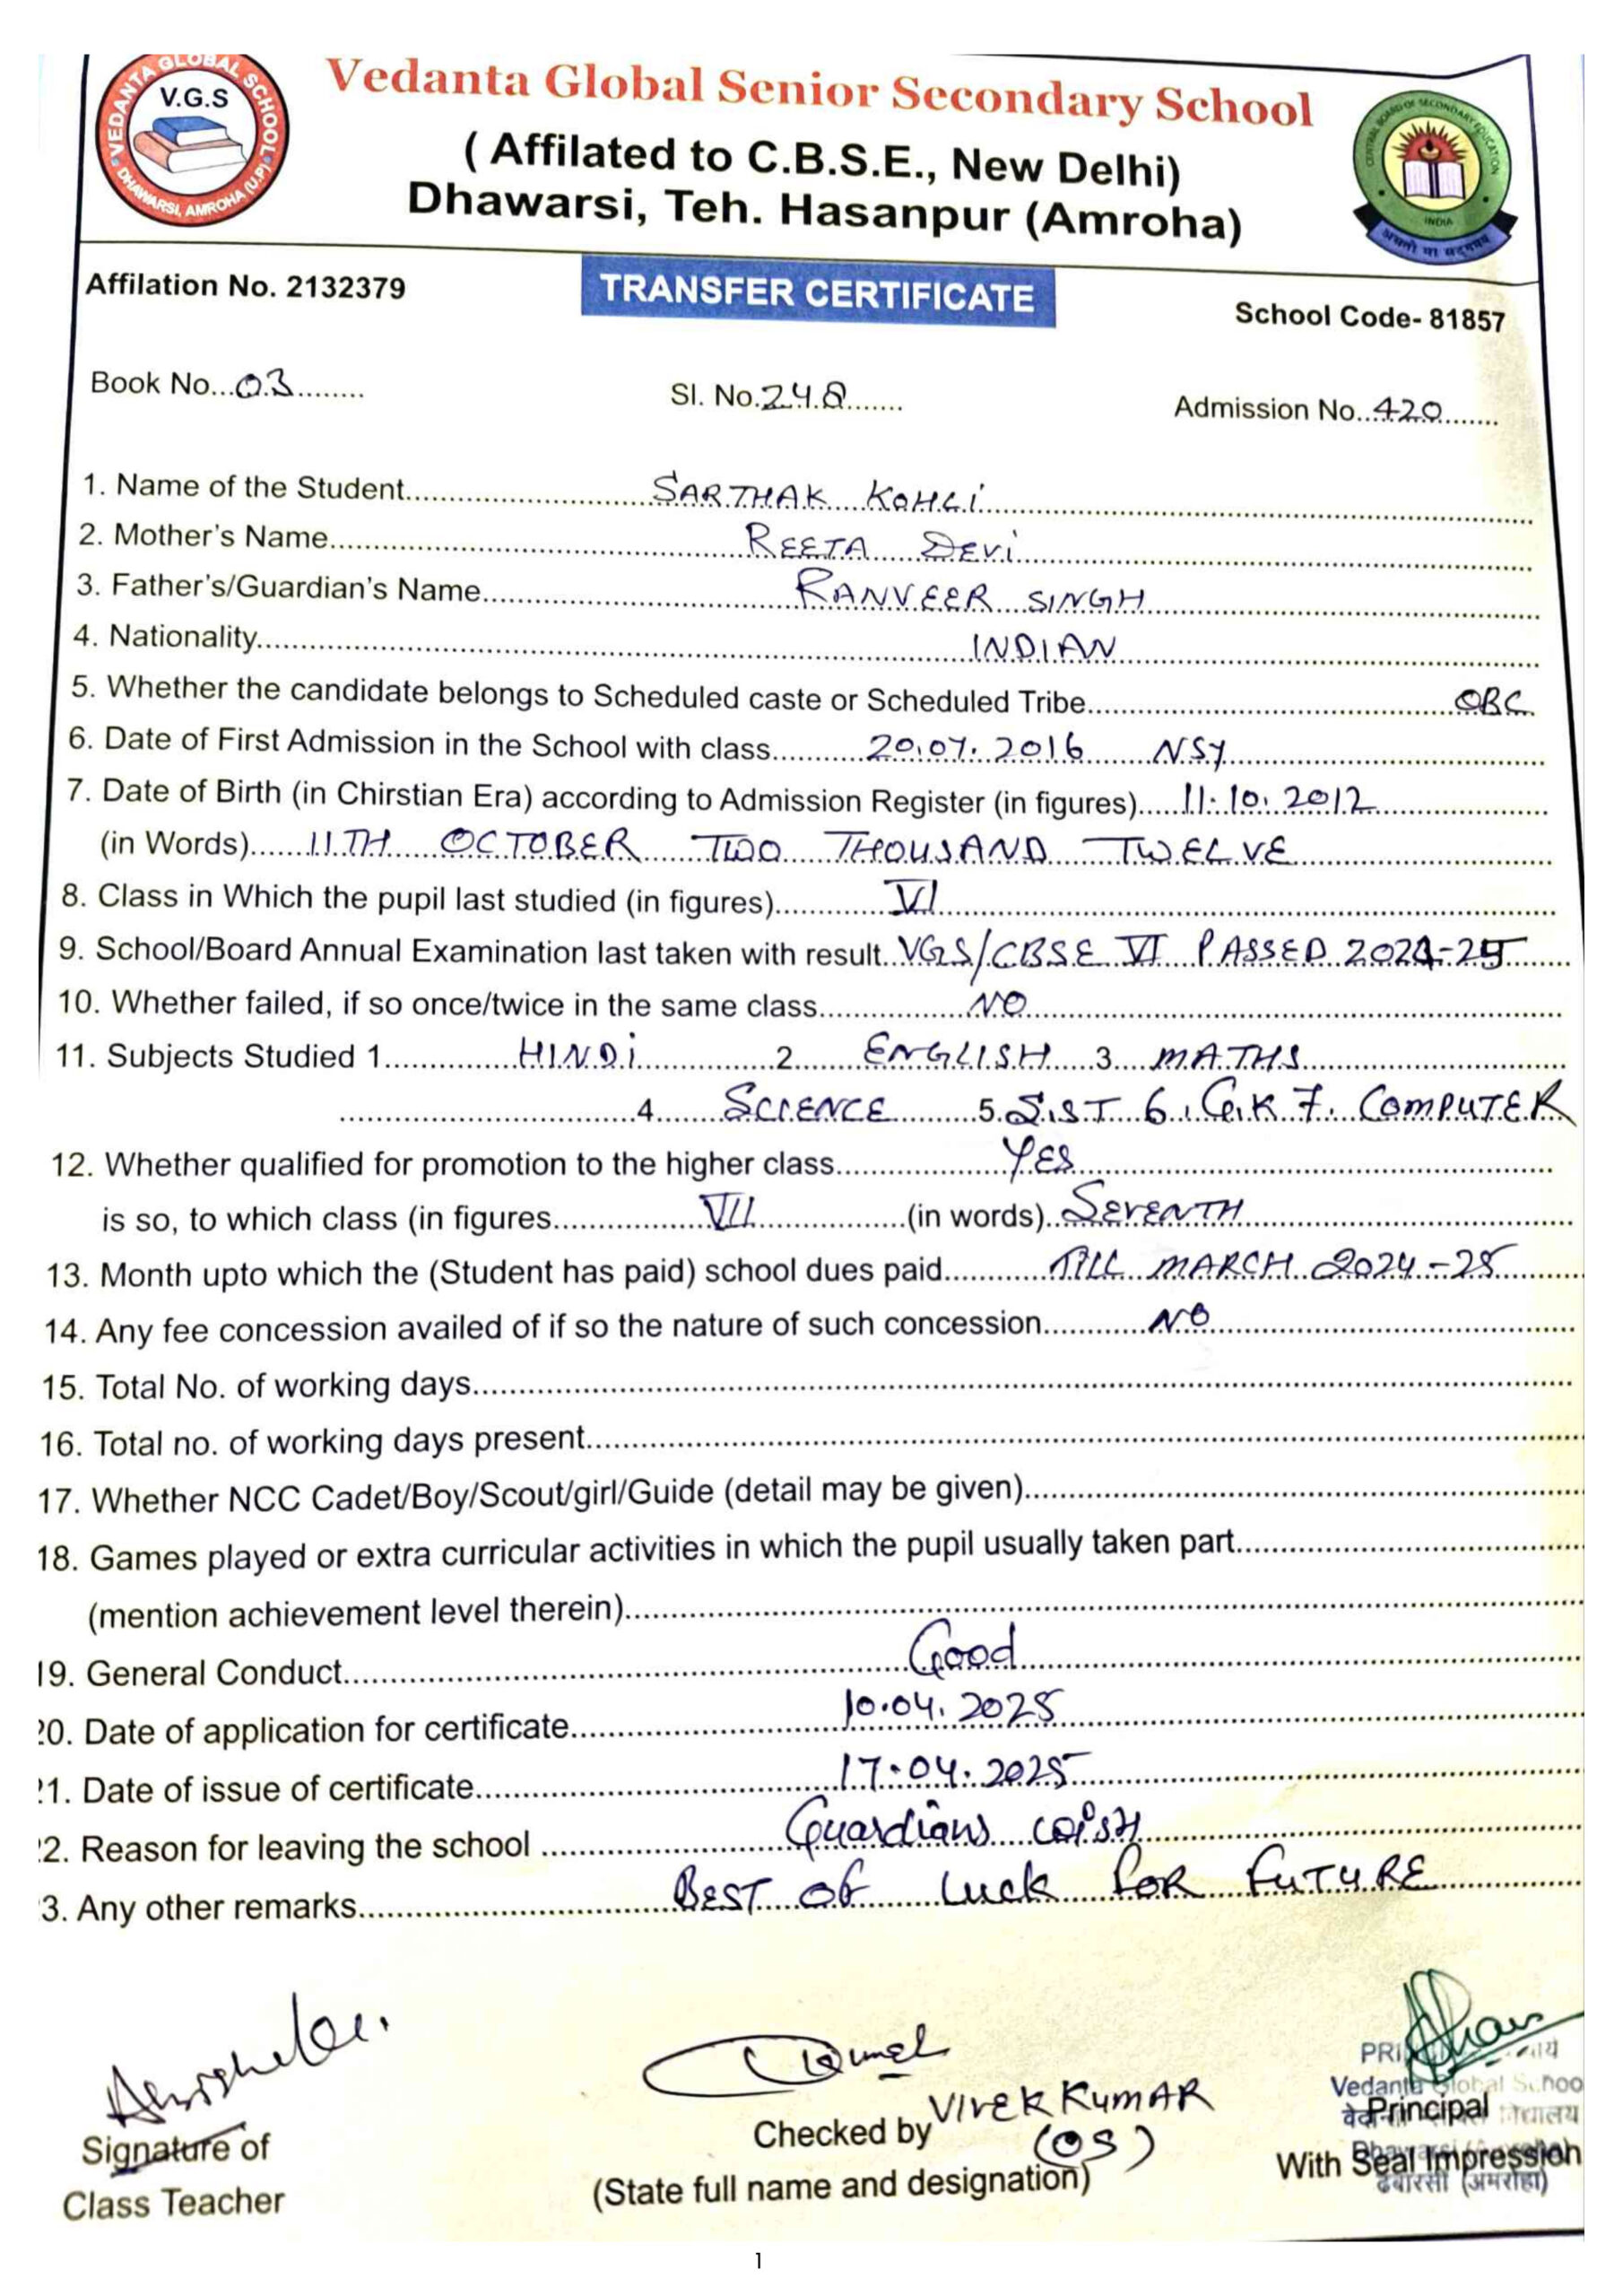 VEDANTA GLOBAL SCHOOL
V.G.S
DHAWARSI, AMROHA (U.P)
Vedanta Global Senior Secondary School
( Affilated to C.B.S.E., New Delhi)
Dhawarsi, Teh. Hasanpur (Amroha)
CENTRAL BOARD OF SECONDARY EDUCATION
INDIA
असतो मा सद्गमय
Affilation No. 2132379
TRANSFER CERTIFICATE
School Code- 81857
Book No...03........
Sl. No.248.......
Admission No..420........
1. Name of the Student..........SARTHAK KOHLi..........
2. Mother's Name..........REETA DEVi..........
3. Father's/Guardian's Name..........RANVEER SINGH..........
4. Nationality..........INDIAN..........
5. Whether the candidate belongs to Scheduled caste or Scheduled Tribe..........OBC
6. Date of First Admission in the School with class..........20.07.2016 NSY..........
7. Date of Birth (in Chirstian Era) according to Admission Register (in figures).....11.10.2012..........
(in Words)......11TH OCTOBER TWO THOUSAND TWELVE..........
8. Class in Which the pupil last studied (in figures)..........VI..........
9. School/Board Annual Examination last taken with result..VGS/CBSE VI PASSED 2024-25.......
10. Whether failed, if so once/twice in the same class..........NO..........
11. Subjects Studied 1..........HINDi..........2.......ENGLISH.....3...MATHS..........
..........4.......SCIENCE.........5.S.ST 6. G.K 7. COMPUTER
12. Whether qualified for promotion to the higher class..........YES..........
is so, to which class (in figures..........VII..........(in words)..SEVENTH..........
13. Month upto which the (Student has paid) school dues paid..........TILL MARCH 2024-25.......
14. Any fee concession availed of if so the nature of such concession..........NO..........
15. Total No. of working days..........
16. Total no. of working days present..........
17. Whether NCC Cadet/Boy/Scout/girl/Guide (detail may be given)..........
18. Games played or extra curricular activities in which the pupil usually taken part..........
(mention achievement level therein)..........
19. General Conduct..........Good..........
20. Date of application for certificate..........10.04.2025..........
21. Date of issue of certificate..........17.04.2025..........
22. Reason for leaving the school ..........Guardians wish..........
3. Any other remarks..........BEST OF Luck FOR FUTURE..........
PRI
Vedanta Global Schoo
Checked by VIVEK KUMAR
Principal
(OS)
Signature of
(State full name and designation)
With Seal Impression
Class Teacher
(अमरोहा)
1